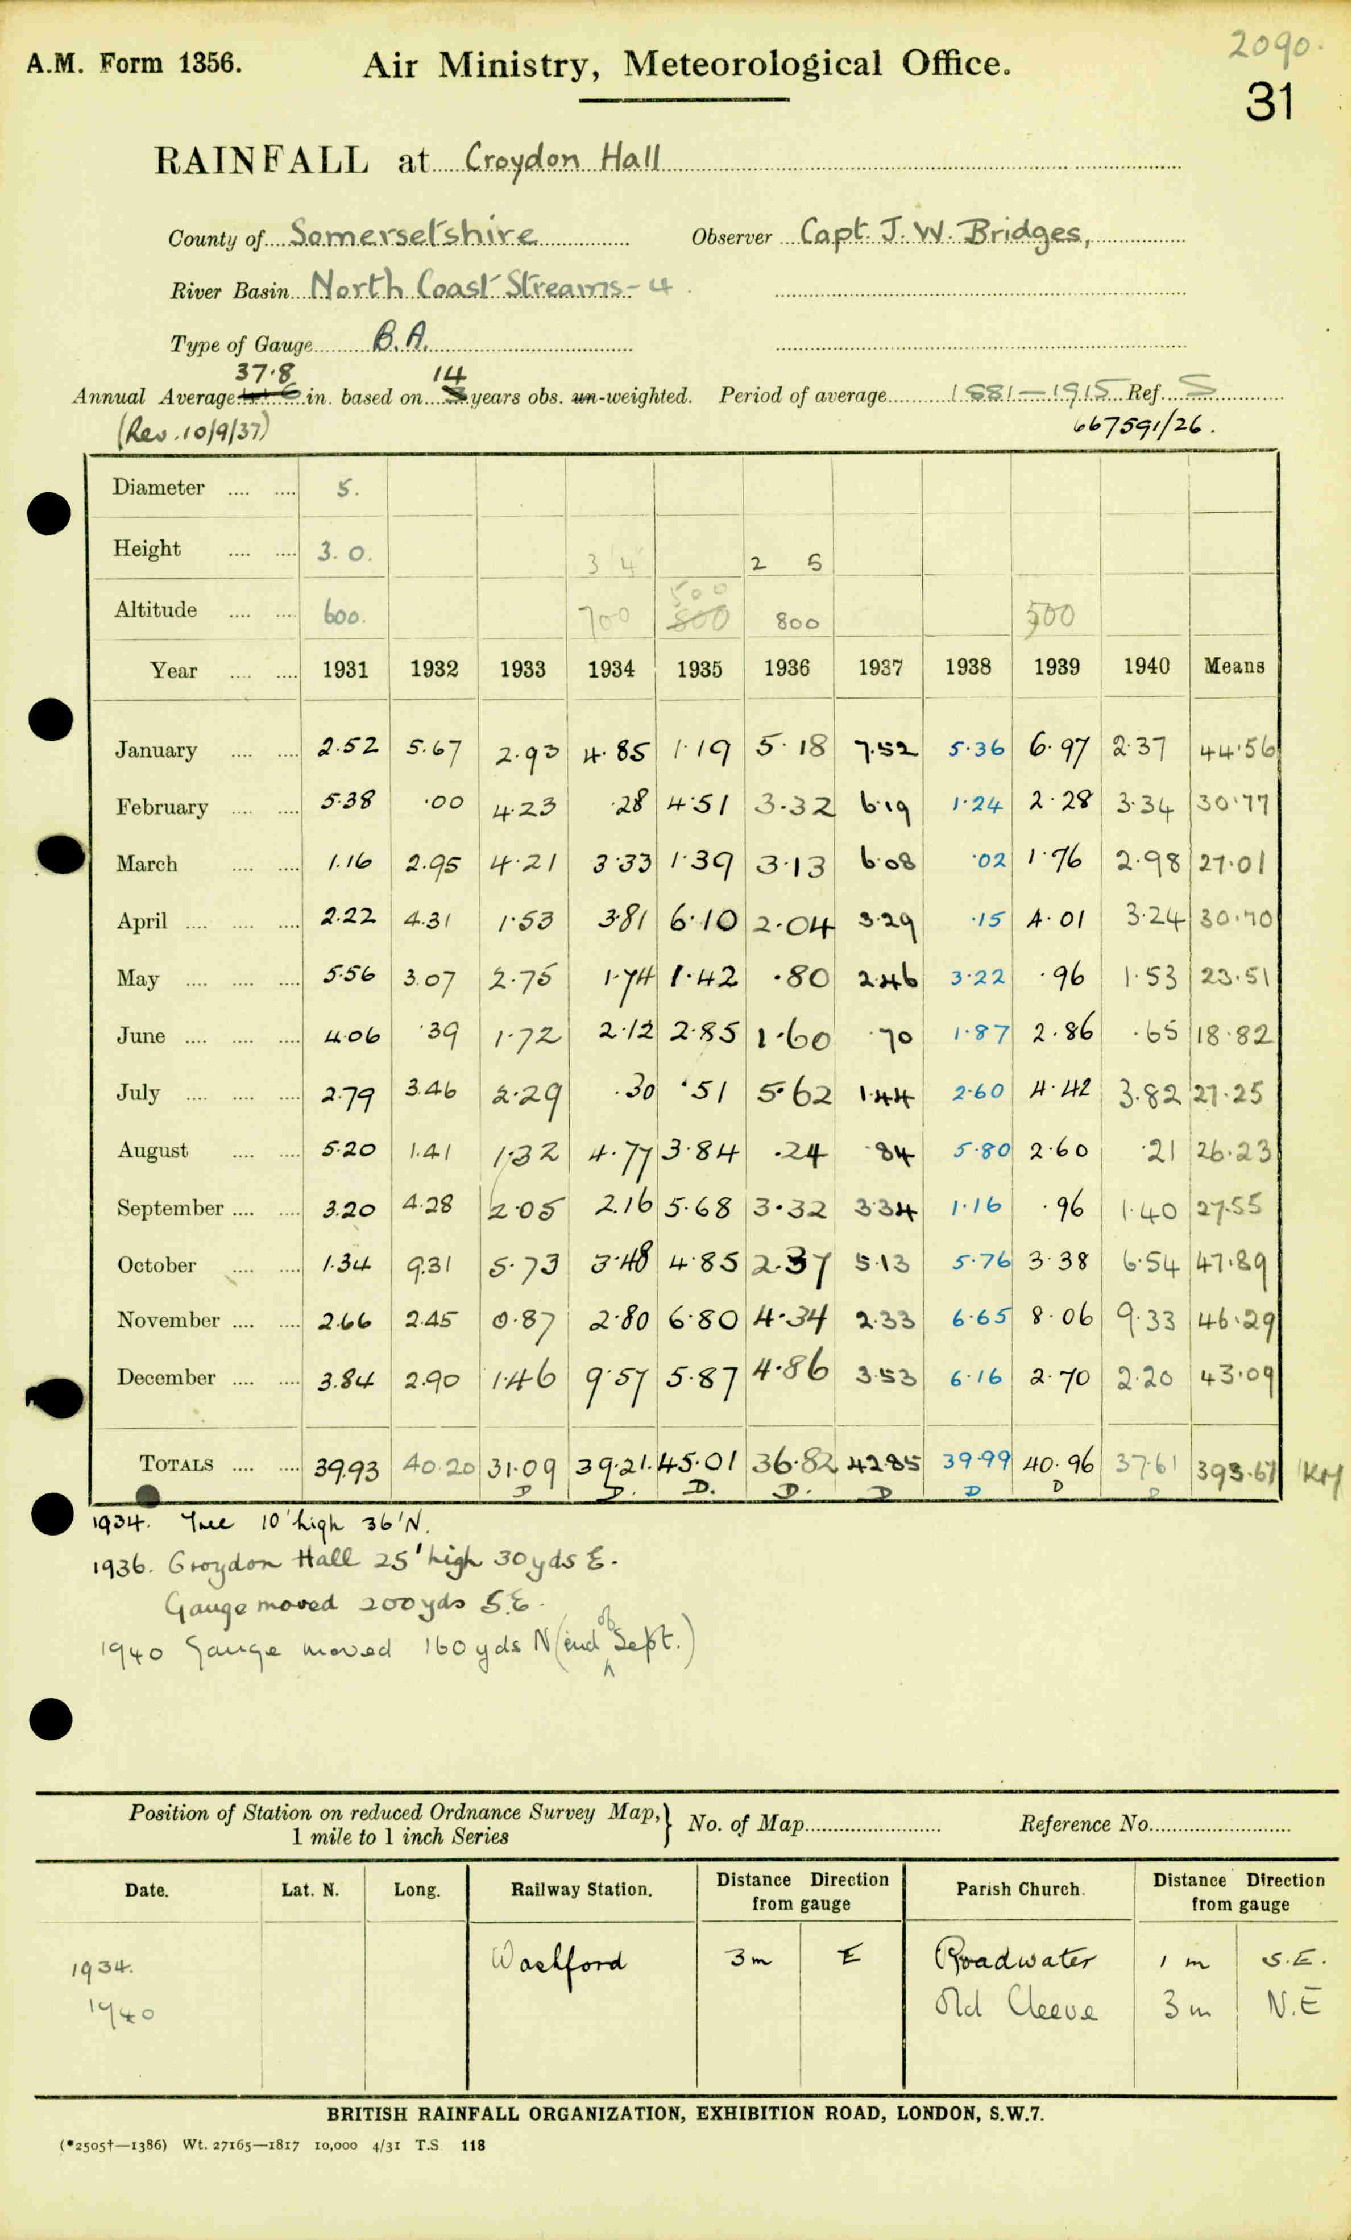 2090.
A.M. Form 1356. Air Ministry, Meteorological Office.
31
RAINFALL at Croydon Hall
County of Somersetshire Observer Capt. J. W. Bridges,
River Basin North Coast Streams - 4.
Type of Gauge B.A.
37.8 14
Annual Average in. based on years obs. un-weighted. Period of average 1881-1915 Ref. S
(Rev. 10/9/37) 667591/26.
Diameter .... .... 5.
Height .... .... 3. 0. 3 4 2 5
500
Altitude .... .... 600. 700 800 800 500
Year .... .... 1931 1932 1933 1934 1935 1936 1937 1938 1939 1940 Means
January .... .... 2.52 5.67 2.93 4.85 1.19 5.18 7.52 5.36 6.97 2.37 44.56
February .... .... 5.38 .00 4.23 .28 4.51 3.32 6.19 1.24 2.28 3.34 30.77
March .... .... 1.16 2.95 4.21 3.33 1.39 3.13 6.08 .02 1.76 2.98 27.01
April .... .... .... 2.22 4.31 1.53 3.81 6.10 2.04 3.29 .15 4.01 3.24 30.70
May .... .... .... 5.56 3.07 2.75 1.74 1.42 .80 2.46 3.22 .96 1.53 23.51
June .... .... .... 4.06 .39 1.72 2.12 2.85 1.60 .70 1.87 2.86 .65 18.82
July .... .... .... 2.79 3.46 2.29 .30 .51 5.62 1.44 2.60 4.42 3.82 27.25
August .... .... 5.20 1.41 1.32 4.77 3.84 .24 .84 5.80 2.60 .21 26.23
September .... .... 3.20 4.28 2.05 2.16 5.68 3.32 3.34 1.16 .96 1.40 27.55
October .... .... 1.34 9.31 5.73 3.48 4.85 2.37 5.13 5.76 3.38 6.54 47.89
November .... .... 2.66 2.45 0.87 2.80 6.80 4.34 2.33 6.65 8.06 9.33 46.29
December .... .... 3.84 2.90 1.46 9.57 5.87 4.86 3.53 6.16 2.70 2.20 43.09
TOTALS .... .... 39.93 40.20 31.09 39.21. 45.01 36.82 42.85 39.99 40.96 37.61 393.67
D D. D. D. D D D D
1934. Tree 10' high 36' N.
1936. Croydon Hall 25' high 30 yds E.
Gauge moved 200 yds S.E.
1940 Gauge moved 160 yds N (end of Sept.)
Position of Station on reduced Ordnance Survey Map,
1 mile to 1 inch Series } No. of Map Reference No.
Date. Lat. N. Long. Railway Station. Distance Direction from gauge Parish Church. Distance Direction from gauge
1934. Washford 3m E Roadwater 1 m S.E.
1940 Old Cleeve 3 m N.E
BRITISH RAINFALL ORGANIZATION, EXHIBITION ROAD, LONDON, S.W.7.
(*2505†—1386) Wt. 27165—1817 10,000 4/31 T.S. 118